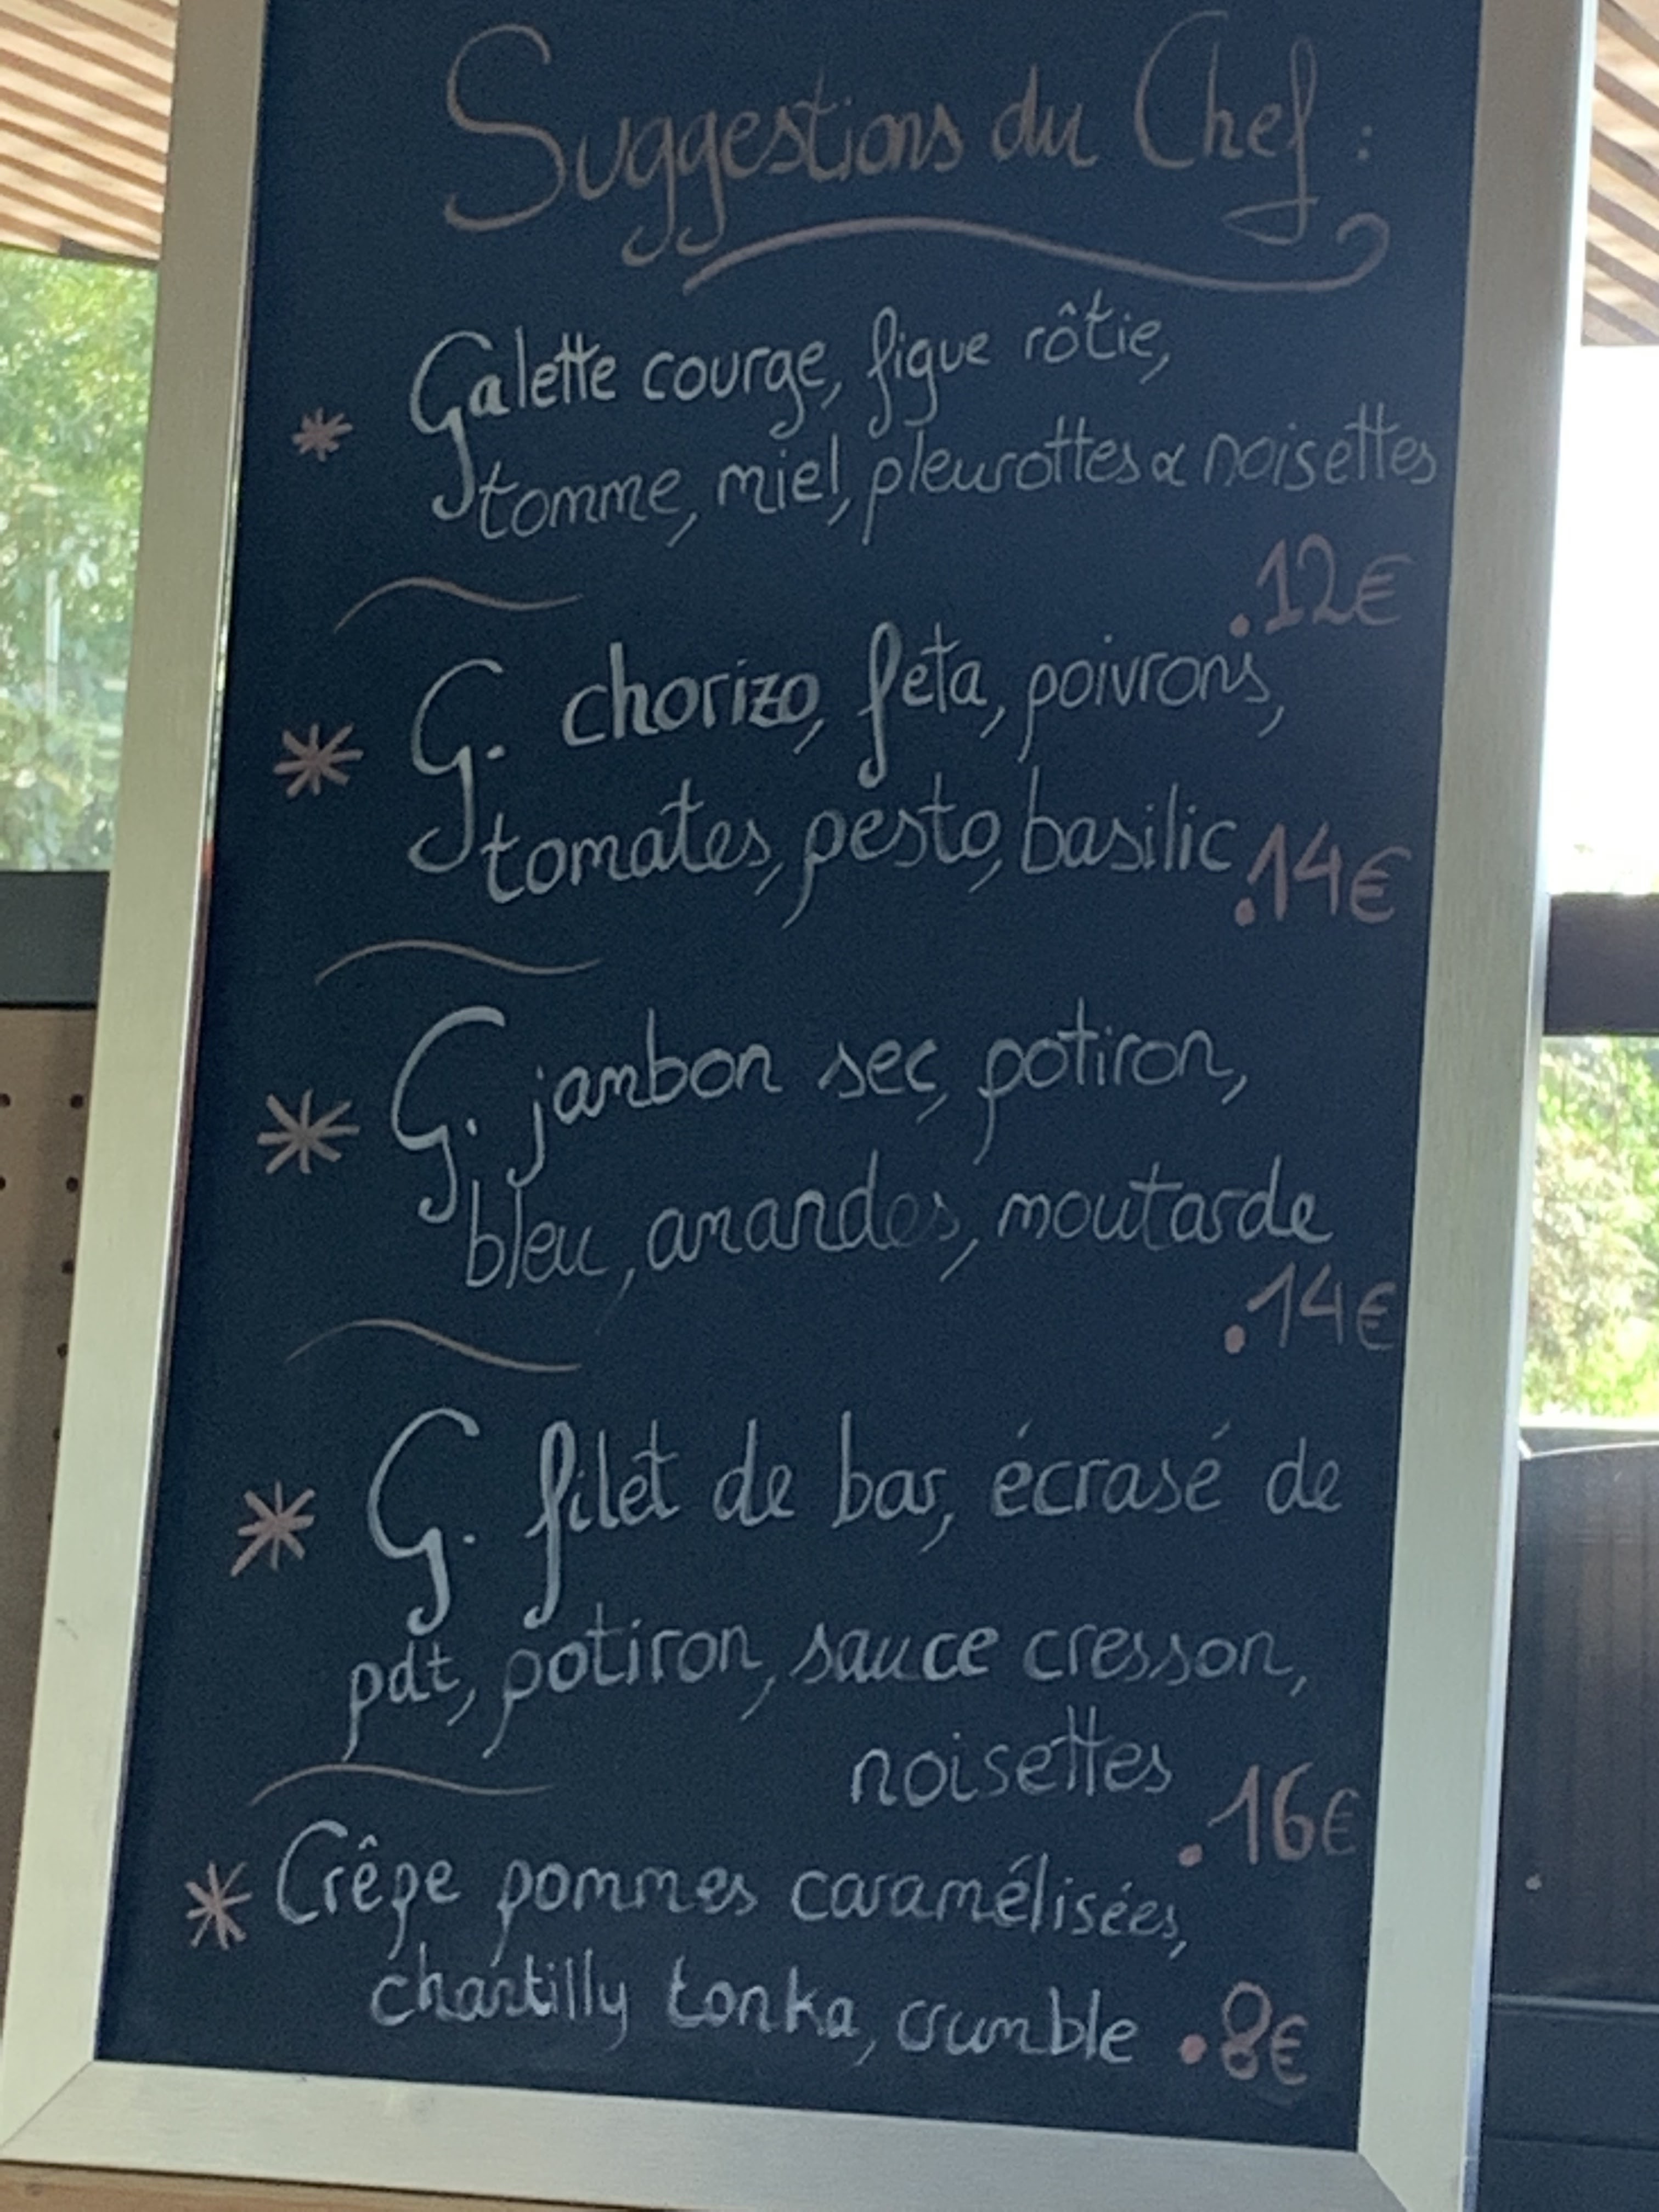 Suggestions du Chef :
* Galette courge, figue rôtie,
tomme, miel, pleurottes & noisettes
.12€
* G. chorizo, feta, poivrons,
tomates, pesto, basilic .14€
* G. jambon sec, potiron,
bleu, amandes, moutarde
.14€
* G. filet de bar, écrasé de
pdt, potiron, sauce cresson,
noisettes .16€
* Crêpe pommes caramélisées,
chantilly tonka, crumble .8€